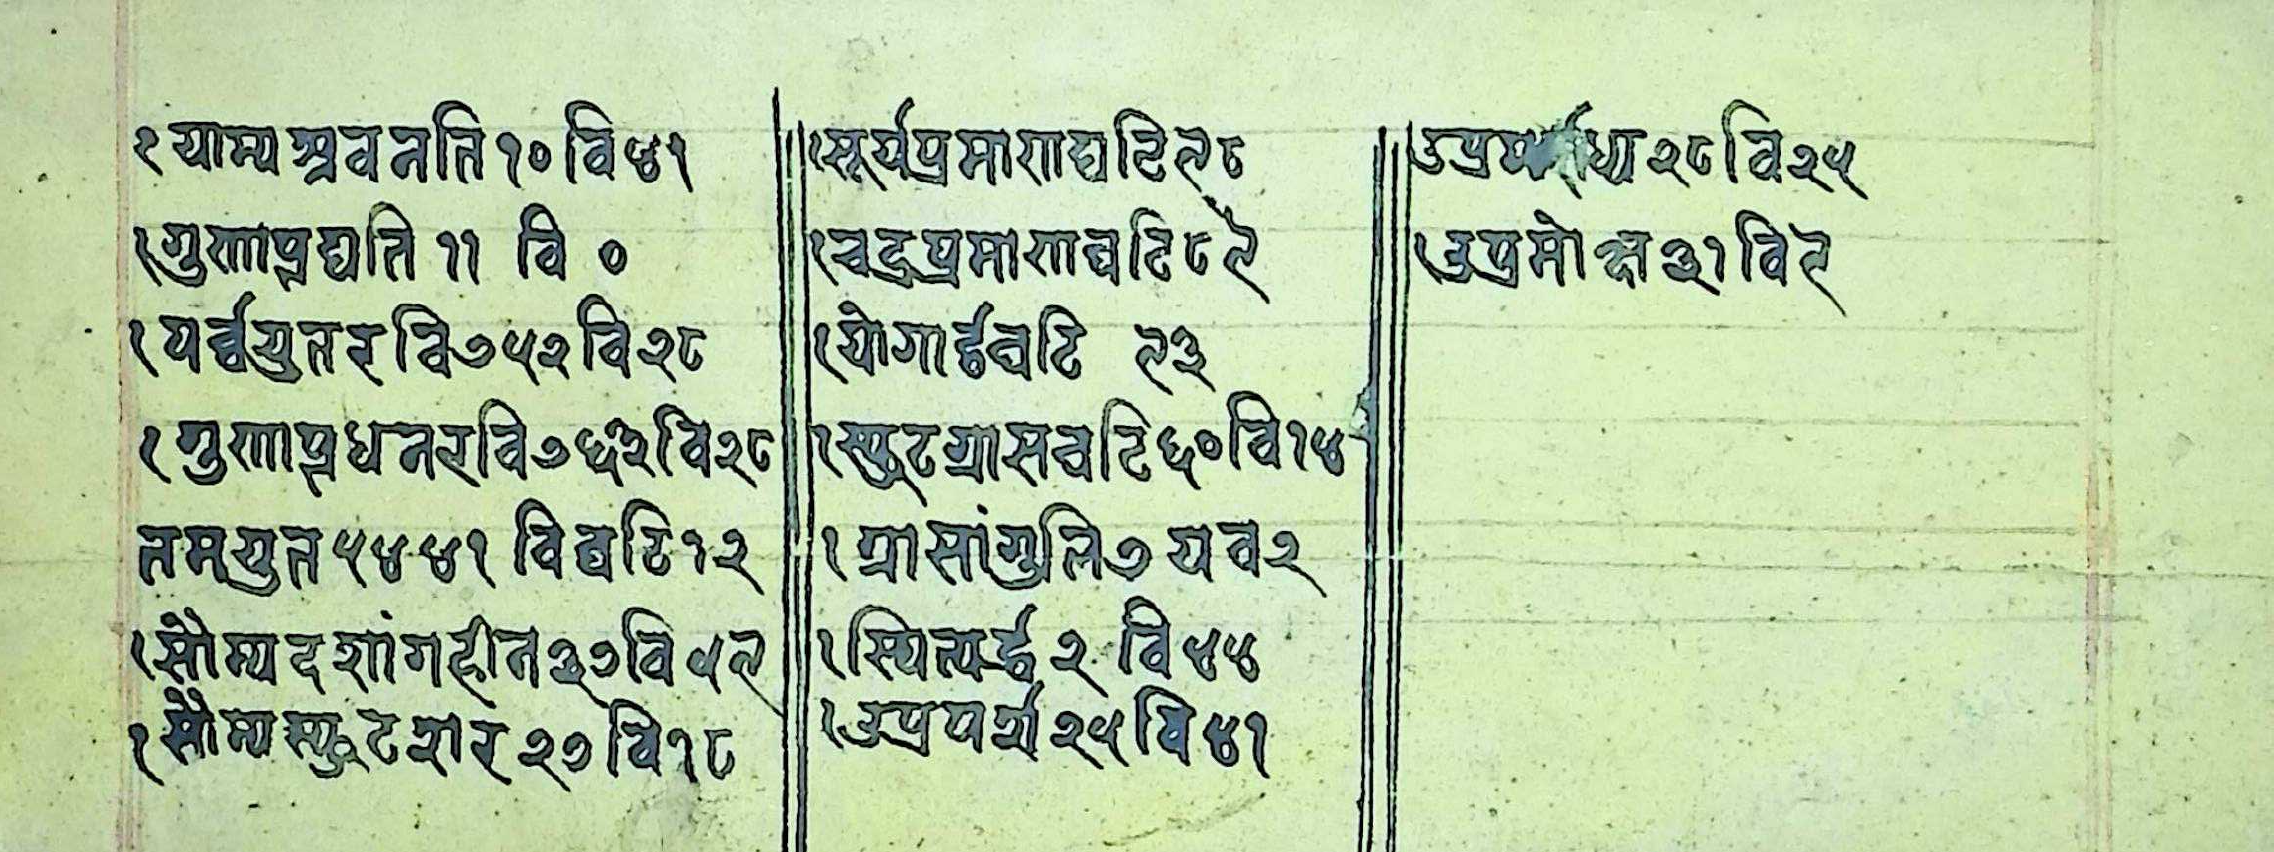 १ याम्य अवनति १० वि ४१
१ गुणाप्रद्यति ११ वि ०
१ पर्व्वयुत रवि ७५२ वि २८
१ गुणाप्रधन रवि ७६२ वि २८
तमयुत ५४४१ विघटि १२
१ सौम्य दशांगहीन ३७ वि ५९
१ सौम्य स्फुट शर २७ वि १८
१ सूर्यप्रमाण घटि ९८
१ चद्रप्रमाण घटि ८९
१ योगार्द्ध घटि ९३
१ स्फुटग्रास घटि ६० वि १४
१ ग्रासांगुलि ७ यव २
१ स्थित्यर्द्ध २ वि ४४
१ उप्रपर्श २५ वि ४१
उप्रम २८ वि २५
१ उप्रमोक्ष ३१ वि ९